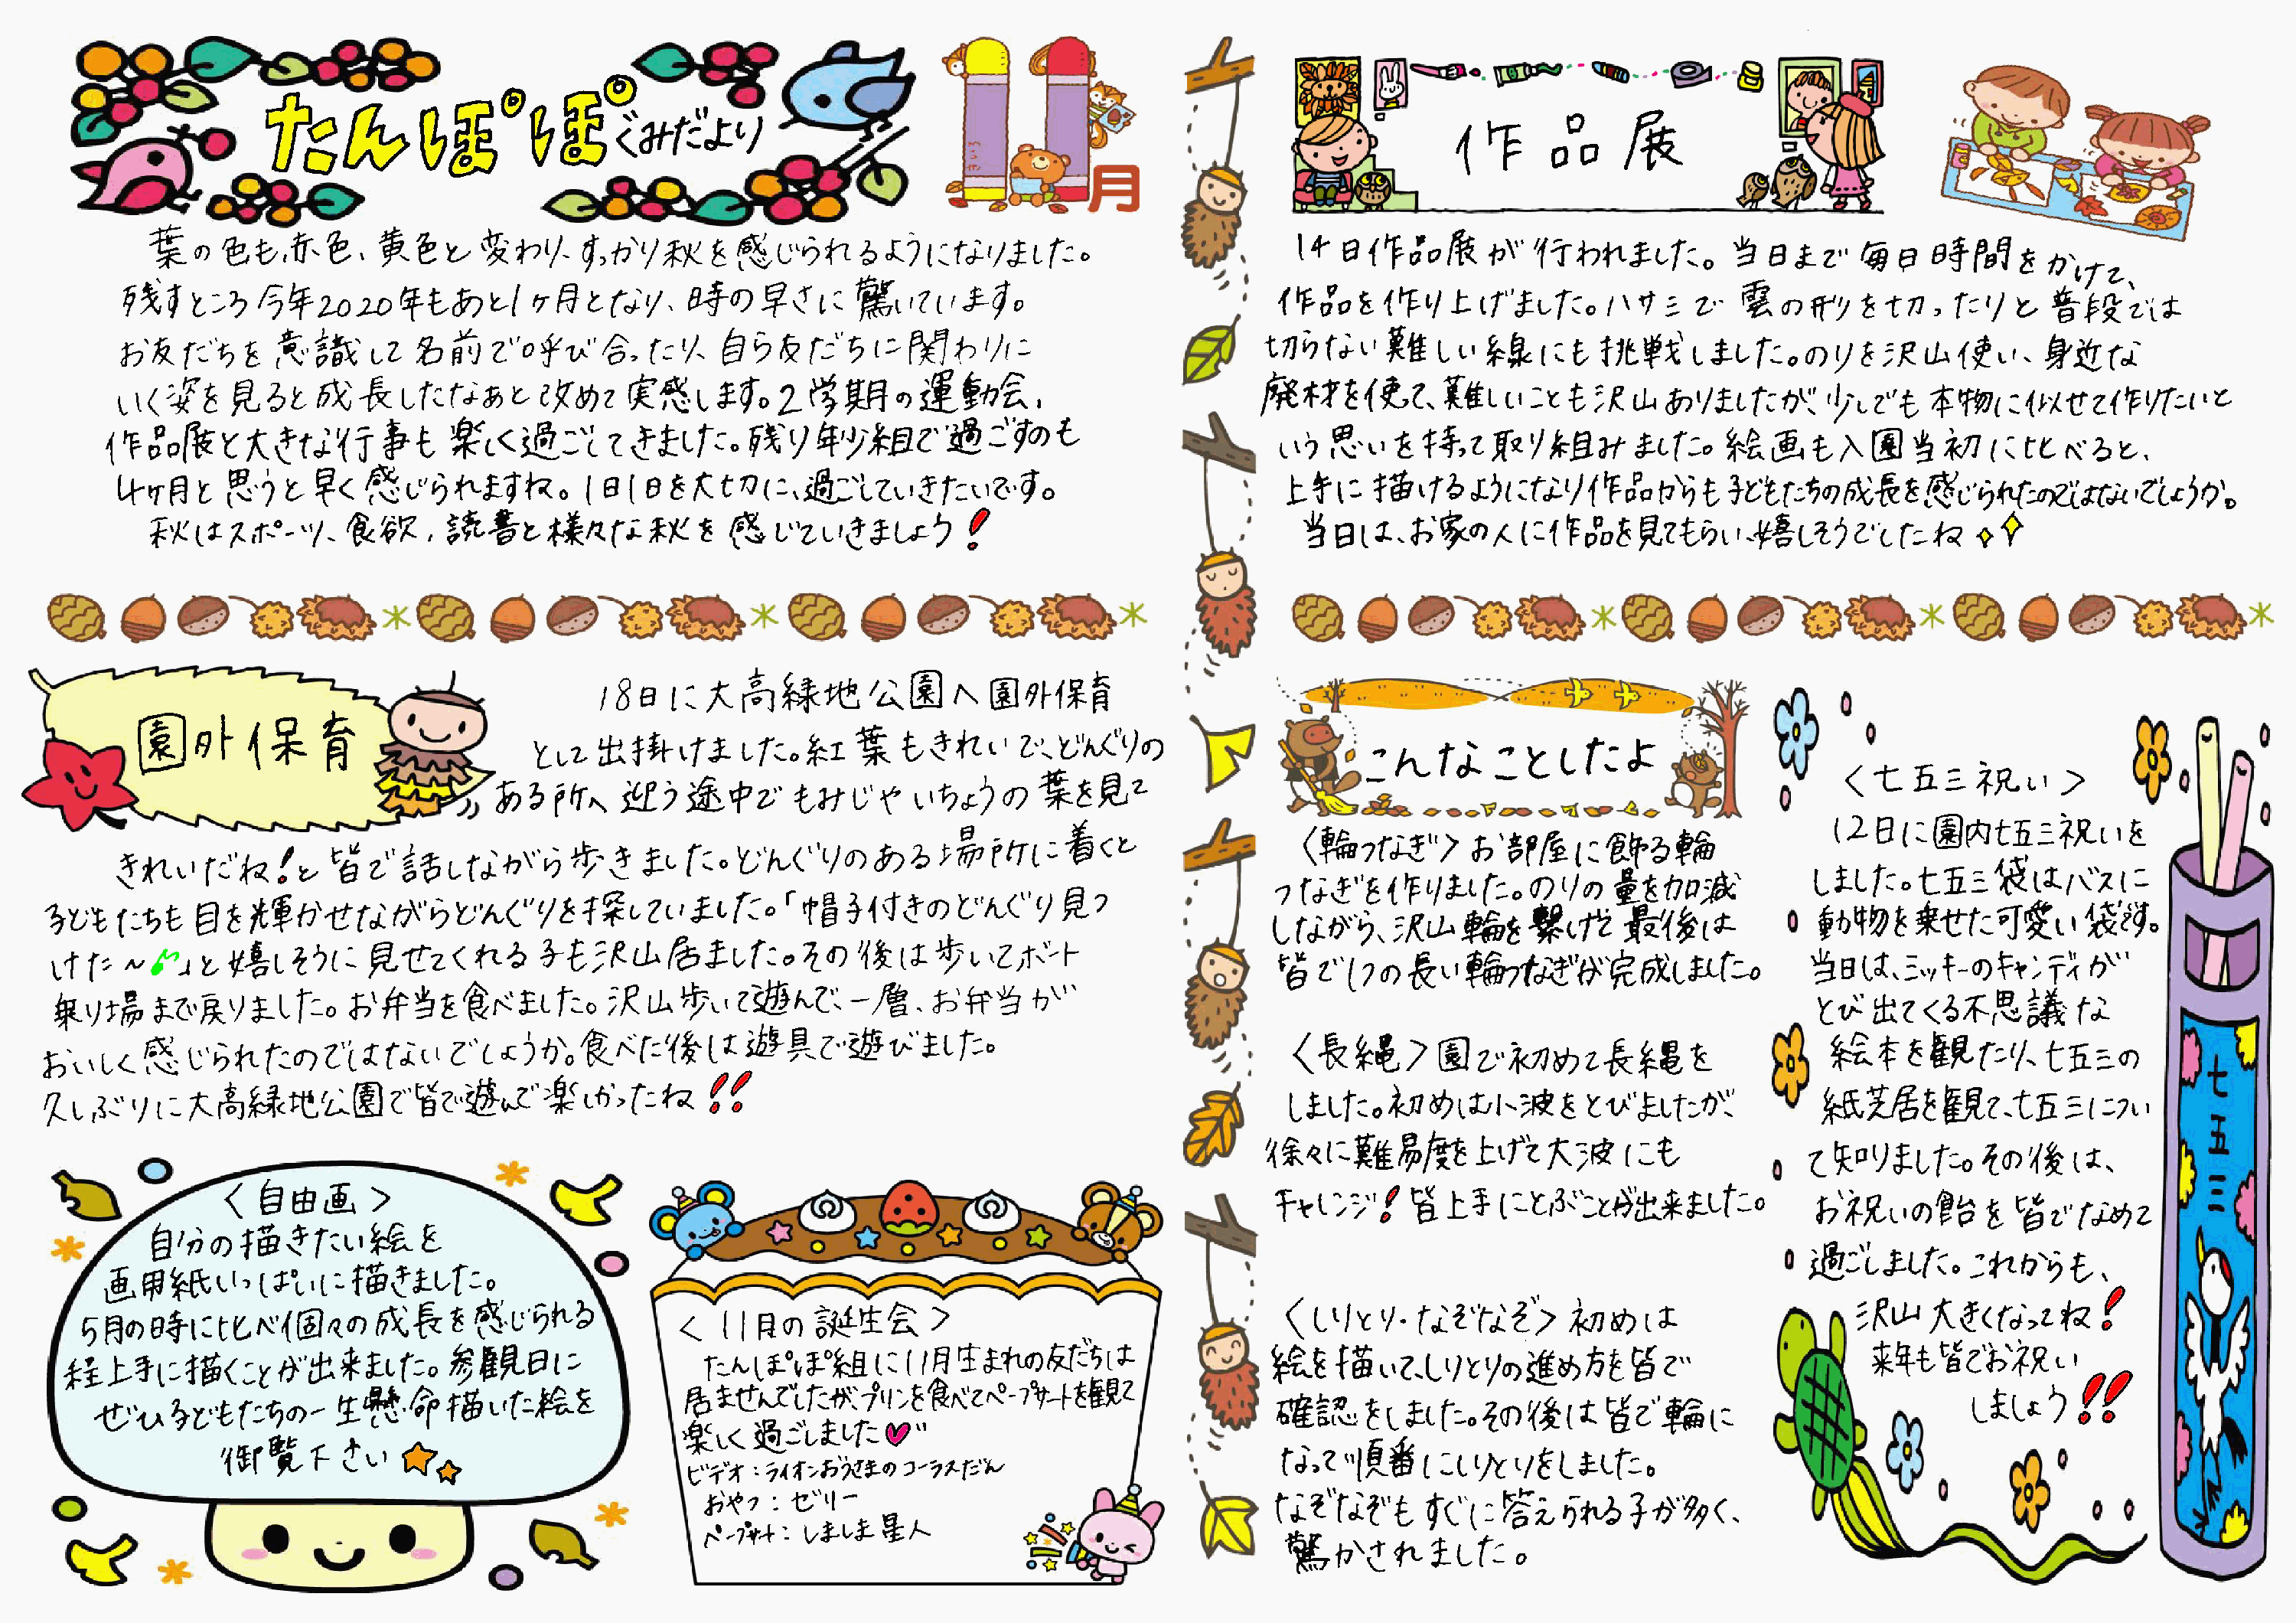 たんぽぽぐみだより
11月
葉の色も赤色、黄色と変わり、すっかり秋を感じられるようになりました。
残すところ今年2020年もあと1ヶ月となり、時の早さに驚いています。
お友だちを意識して名前で呼び合ったり、自ら友だちに関わりに
いく姿を見ると成長したなあと改めて実感します。2学期の運動会、
作品展と大きな行事も楽しく過ごしてきました。残り年少組で過ごすのも
4ヶ月と思うと早く感じられますね。1日1日を大切に、過ごしていきたいです。
秋はスポーツ、食欲、読書と様々な秋を感じていきましょう!
園外保育
18日に大高緑地公園へ園外保育
として出掛けました。紅葉もきれいで、どんぐりの
ある所へ迎う途中でもみじやいちょうの葉を見て
きれいだね!と皆で話しながら歩きました。どんぐりのある場所に着くと
子どもたちも目を輝かせながらどんぐりを探していました。「帽子付きのどんぐり見つ
けた~♪」と嬉しそうに見せてくれる子も沢山居ました。その後は歩いてボート
乗り場まで戻りました。お弁当を食べました。沢山歩いて遊んで、一層、お弁当が
おいしく感じられたのではないでしょうか。食べた後は遊具で遊びました。
久しぶりに大高緑地公園で皆で遊んで楽しかったね!!
〈自由画〉
自分の描きたい絵を
画用紙いっぱいに描きました。
5月の時に比べ個々の成長を感じられる
程上手に描くことが出来ました。参観日に
ぜひ子どもたちの一生懸命描いた絵を
御覧下さい
〈11月の誕生会〉
たんぽぽ組に11月生まれの友だちは
居ませんでしたが、プリンを食べてペープサートを観て
楽しく過ごしました
ビデオ:ライオンおうさまのコーラスだん
おやつ:ゼリー
ペープサート:しましま星人
作品展
14日作品展が行われました。当日まで毎日時間をかけて、
作品を作り上げました。ハサミで雲の形を切ったりと普段では
切らない難しい線にも挑戦しました。のりを沢山使い、身近な
廃材を使て、難しいことも沢山ありましたが、少しでも本物に似せて作りたいと
いう思いを持って取り組みました。絵画も入園当初に比べると、
上手に描けるようになり作品からも子どもたちの成長を感じられたのではないでしょうか。
当日は、お家の人に作品を見てもらい、嬉しそうでしたね
こんなことしたよ
〈輪つなぎ〉お部屋に飾る輪
つなぎを作りました。のりの量を加減
しながら、沢山輪を繋げて最後は
皆で1つの長い輪つなぎが完成しました。
〈長縄〉園で初めて長縄を
しました。初めは小波をとびましたが、
徐々に難易度を上げて大波にも
チャレンジ!皆上手にとぶことが出来ました。
〈しりとり・なぞなぞ〉初めは
絵を描いて、しりとりの進め方を皆で
確認をしました。その後は皆で輪に
なって順番にしりとりをしました。
なぞなぞもすぐに答えられる子が多く、
驚かされました。
〈七五三祝い〉
12日に園内七五三祝いを
しました。七五三袋はバスに
動物を乗せた可愛い袋です。
当日は、ミッキーのキャンディが
とび出てくる不思議な
絵本を観たり、七五三の
紙芝居を観て、七五三につい
て知りました。その後は、
お祝いの飴を皆でなめて
過ごしました。これからも、
沢山大きくなってね!
来年も皆でお祝い
しましょう!!
七五三